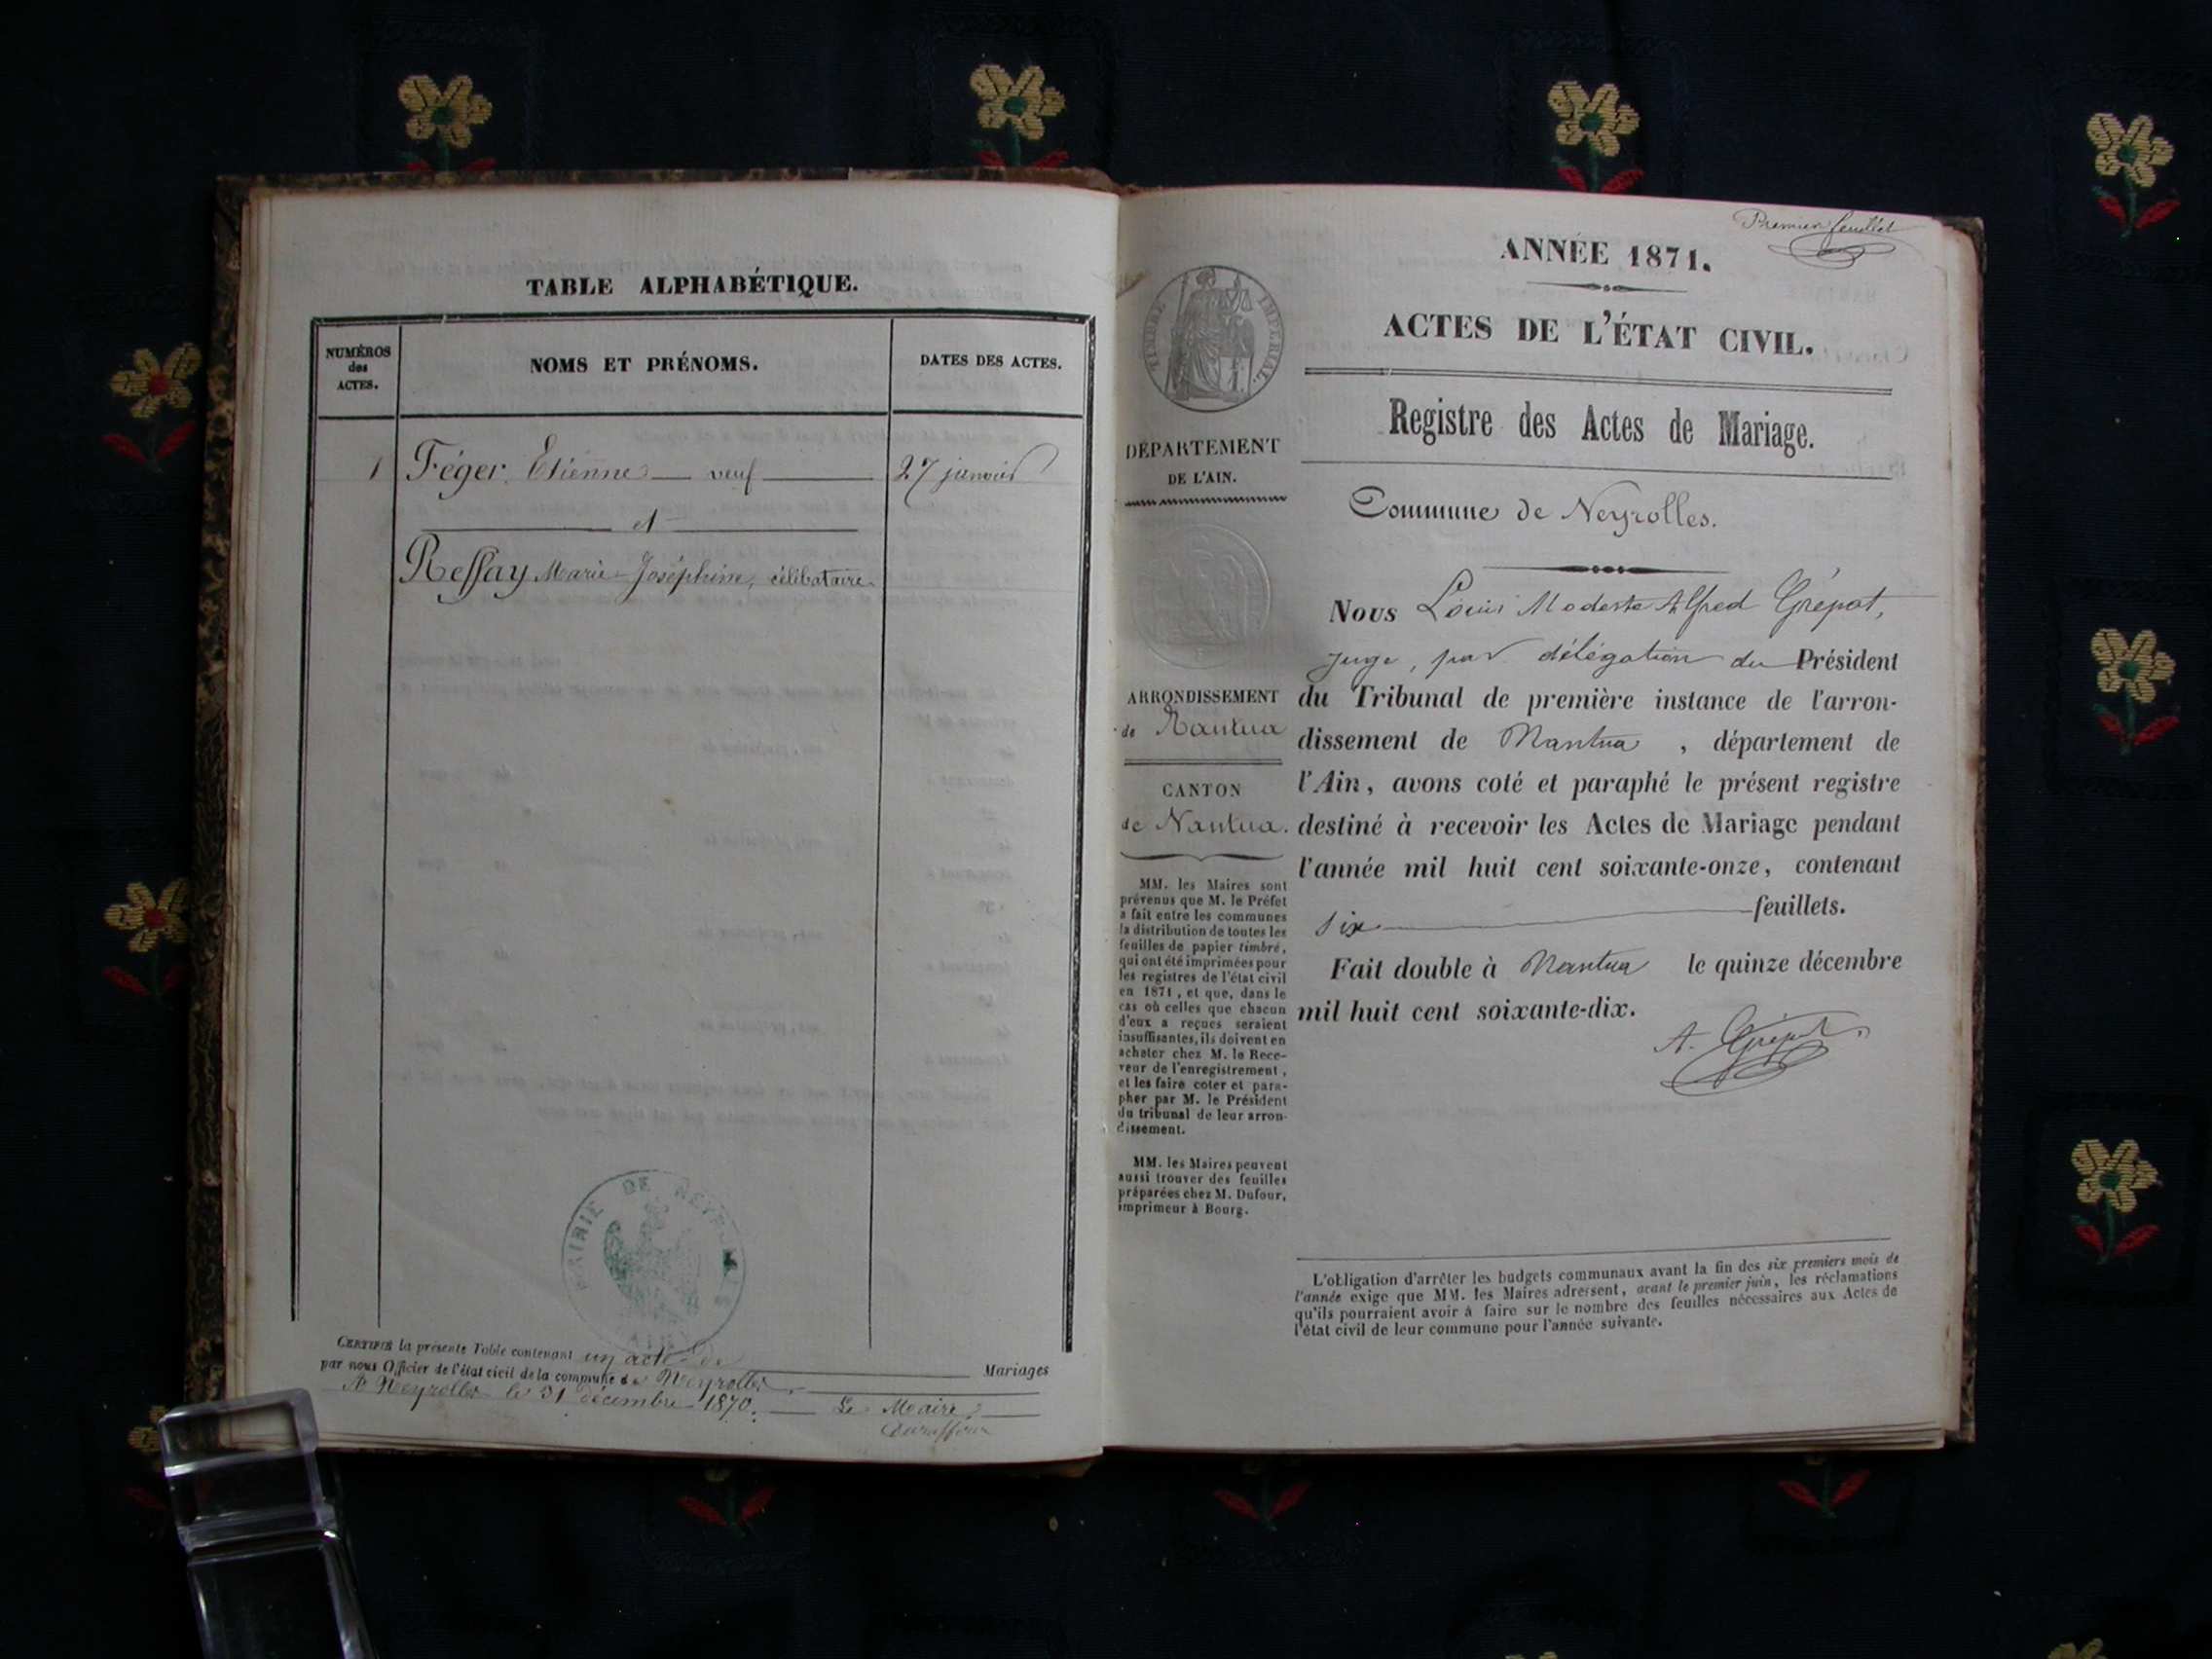 TABLE ALPHABÉTIQUE.
NUMÉROS
des
ACTES.
NOMS ET PRÉNOMS.
DATES DES ACTES.
1 Féger Etienne veuf 27 janvier
et
Reffay Marie-Joséphine, célibataire
MAIRIE DE NEYROLLES
AIN
CERTIFIÉ la présente Table contenant un acte de Mariages
par nous Officier de l'état civil de la commune de Neyrolles.
A Neyrolles le 31 décembre 1870. Le Maire,
Premier feuillet
ANNÉE 1871.
ACTES DE L'ÉTAT CIVIL.
Registre des Actes de Mariage.
TIMBRE IMPÉRIAL.
DÉPARTEMENT
DE L'AIN.
ARRONDISSEMENT
de Nantua
CANTON
de Nantua.
MM. les Maires sont
prévenus que M. le Préfet
a fait entre les communes
la distribution de toutes les
feuilles de papier timbré,
qui ont été imprimées pour
les registres de l'état civil
en 1871, et que, dans le
cas où celles que chacun
d'eux a reçues seraient
insuffisantes, ils doivent en
acheter chez M. le Rece-
veur de l'enregistrement,
et les faire coter et para-
pher par M. le Président
du tribunal de leur arron-
dissement.
MM. les Maires peuvent
aussi trouver des feuilles
préparées chez M. Dufour,
imprimeur à Bourg.
Commune de Neyrolles.
Nous Louis Modeste Alfred Grépat,
juge, par délégation du Président
du Tribunal de première instance de l'arron-
dissement de Nantua, département de
l'Ain, avons coté et paraphé le présent registre
destiné à recevoir les Actes de Mariage pendant
l'année mil huit cent soixante-onze, contenant
six feuillets.
Fait double à Nantua le quinze décembre
mil huit cent soixante-dix.
A. Grépat
L'obligation d'arrêter les budgets communaux avant la fin des six premiers mois de
l'année exige que MM. les Maires adressent, avant le premier juin, les réclamations
qu'ils pourraient avoir à faire sur le nombre des feuilles nécessaires aux Actes de
l'état civil de leur commune pour l'année suivante.